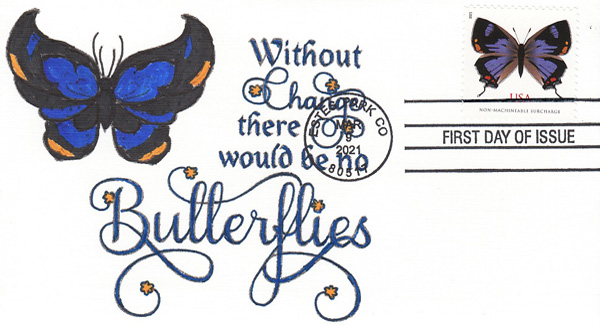 Without
Change
there
would be no
Butterflies
ESTES PARK CO
MAR
9
2021
80511
2021
USA
NON-MACHINEABLE SURCHARGE
FIRST DAY OF ISSUE